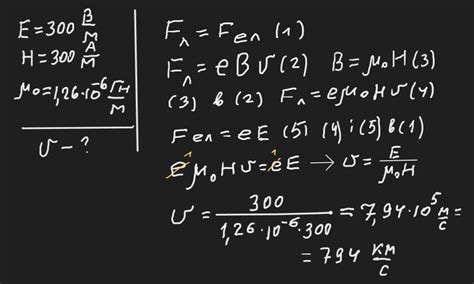 E=300 В/М
H=300 А/М
μ₀=1,26·10⁻⁶ Гн/М
υ-?
Fл = Fел (1)
Fл = eBυ (2) B = μ₀H (3)
(3) в (2) Fл = eμ₀Hυ (4)
Fел = eE (5) (4) i (5) в (1)
eμ₀Hυ = eE → υ = E/μ₀H
υ = 300/1,26·10⁻⁶·300 = 7,94·10⁵ М/С =
= 794 КМ/С